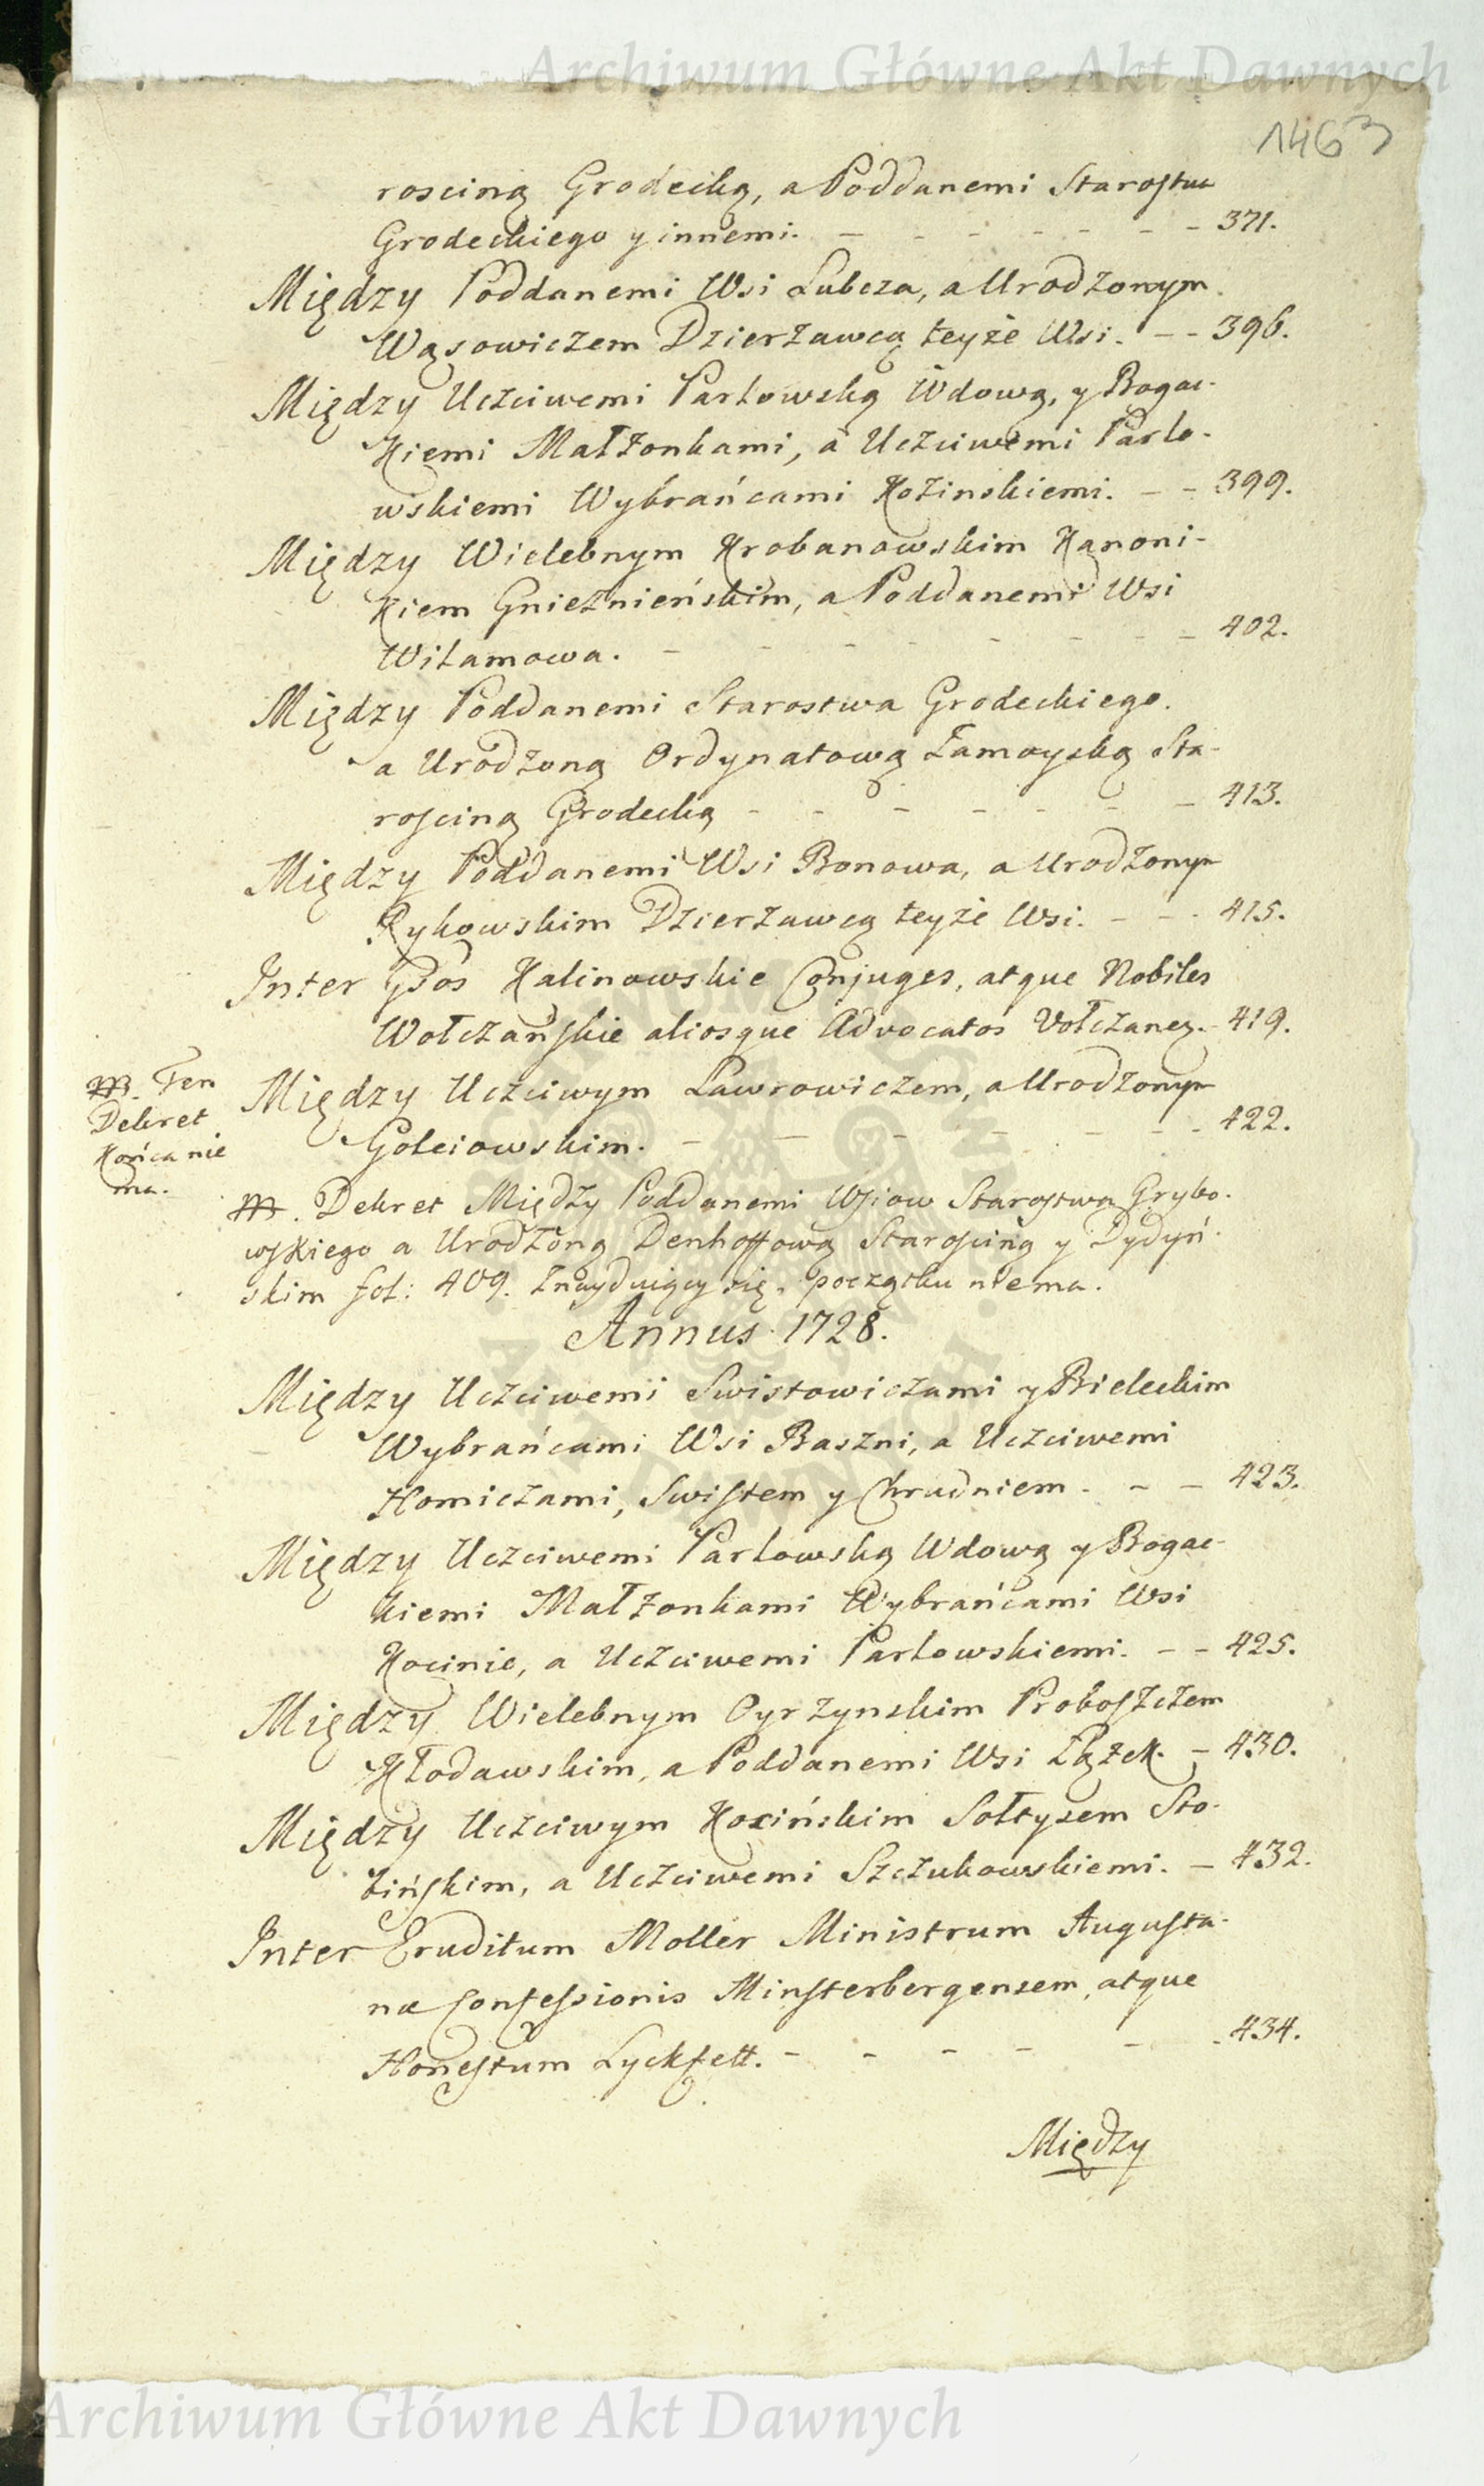 Archiwum Główne Akt Dawnych
1463
rosciną Grodecką, a Poddanemi Starostwa
Grodeckiego y innemi. - - - - - - - 371.
Między Poddanemi Wsi Lubcza, a Urodzonym
Wąsowiczem Dzierzawcą teyże Wsi. - - 396.
Między Uczciwemi Parlowską Wdową, y Bogac-
kiemi Małżonkami, a Uczciwemi Parlo-
wskiemi Wybrańcami Kozinskiemi. - - 399.
Między Wielebnym Krobanowskim Kanoni-
kiem Gnieznieńskim, a Poddanemi Wsi
Witamowa. - - - - - - - 402.
Między Poddanemi Starostwa Grodeckiego.
a Urodzoną Ordynatową Zamoyską Sta-
rosciną Grodecką - - - - - - - 413.
Między Poddanemi Wsi Bonowa, a Urodzonym
Rykowskim Dzierzawcą teyże Wsi. - - - 415.
Inter Gsos Kalinowskie Conjuges, atque Nobiles
Wołczańskie aliosque Advocatos Vołczanen. - 419.
Między Uczciwym Lawrowiczem, a Urodzonym
Gołciowskim. - - - - - - - 422.
Ten
Dekret
Końca nie
ma.
Dekret Między Poddanemi Wsiow Starostwa Grybo-
wskiego a Urodzoną Denhoffową Starosciną y Dydyń-
skim fol: 409. Znayduiący się, początku niema.
Annus 1728.
Między Uczciwemi Swistowiczami y Bieleckim
Wybrańcami Wsi Baszni, a Uczciwemi
Homiczami, Swistem y Chrudniem - - - 423.
Między Uczciwemi Parlowską Wdową y Bogac-
kiemi Małżonkami Wybrańcami Wsi
Kocinie, a Uczciwemi Parlowskiemi. - - 425.
Między Wielebnym Pyrzynskim Proboszczem
Kłodawskim, a Poddanemi Wsi Łążek. - 430.
Między Uczciwym Koxińskim Sołtysem Sto-
bińskim, a Uczciwemi Szczukowskiemi. - 432.
Inter Eruditum Moller Ministrum Augusta-
næ Confessionis Minsterbergensem, atque
Honestum Lyckfett. - - - - - - 434.
Między
Archiwum Główne Akt Dawnych